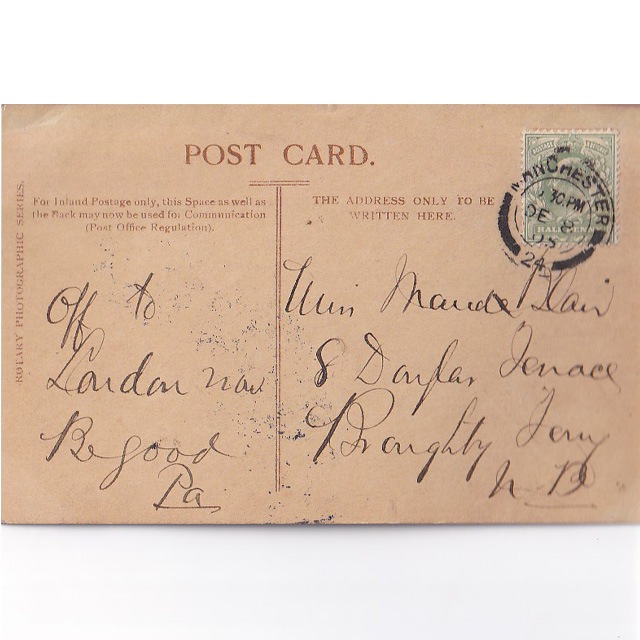 POST CARD.
For Inland Postage only, this Space as well as
the Back may now be used for Communication
(Post Office Regulation).
THE ADDRESS ONLY TO BE
WRITTEN HERE.
ROTARY PHOTOGRAPHIC SERIES.
MANCHESTER
30 PM
DE
05
24
HALFPENNY
Off to
London now
Be good
Pa
Miss Maude Blair
8 Douglas Terrace
Broughty Ferry
N B